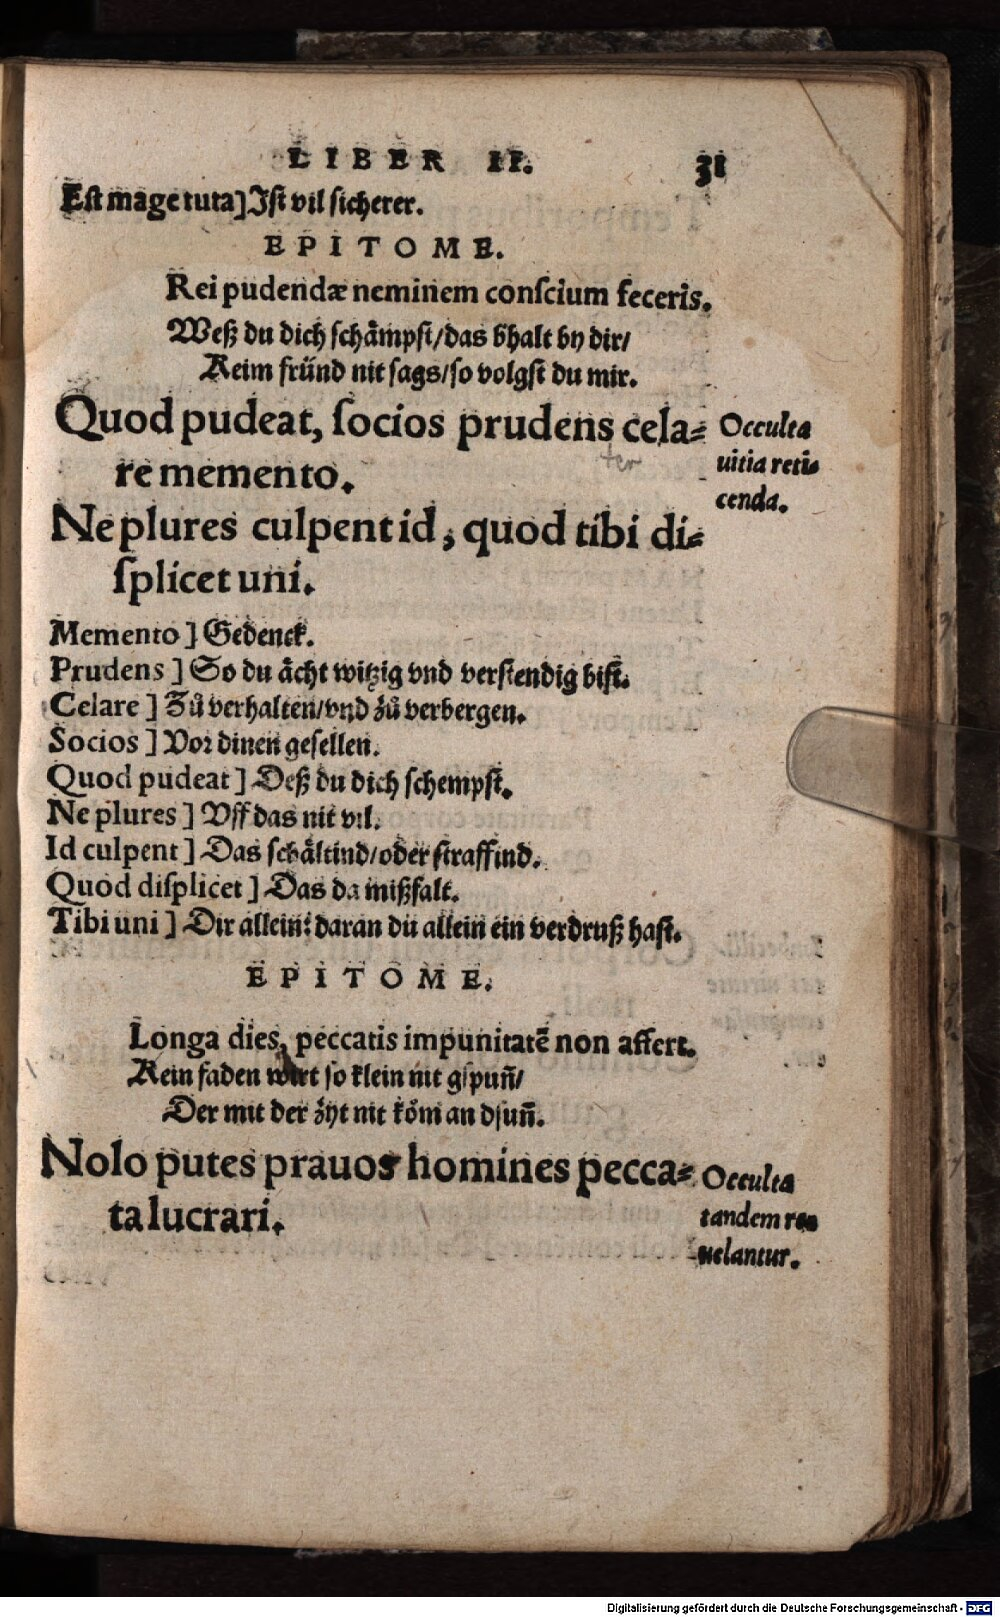 LIBER II. 31
Est mage tuta] Jſt vil ſicherer.
EPITOME.
Rei pudendæ neminem conſcium feceris.
Weß du dich ſchaͤmpſt/das bhalt by dir/
Keim fruͤnd nit ſags/ſo volgſt du mir.
Quod pudeat, ſocios prudens cela⸗
re memento.
ter
Occulta
uitia reti⸗
cenda.
Ne plures culpent id, quod tibi di⸗
ſplicet uni.
Memento] Gedenck.
Prudens] So du aͤcht witzig vnd verſtendig biſt.
Celare] Zuͦ verhalten/vnd zuͦ verbergen.
Socios] Vor dinen geſellen.
Quod pudeat] Deß du dich ſchempſt.
Ne plures] Vff das nit vil.
Id culpent] Das ſchaͤltind/oder ſtraffind.
Quod diſplicet] Das da mißfalt.
Tibi uni] Dir allein: daran du allein ein verdruß haſt.
EPITOME.
Longa dies, peccatis impunitatẽ non affert.
Kein faden wirt ſo klein nit gſpuñ/
Der mit der zyt nit koͤm an dſuñ.
Nolo putes prauos homines pecca⸗
ta lucrari.
Occulta
tandem re⸗
uelantur.
Digitalisierung gefördert durch die Deutsche Forschungsgemeinschaft - DFG